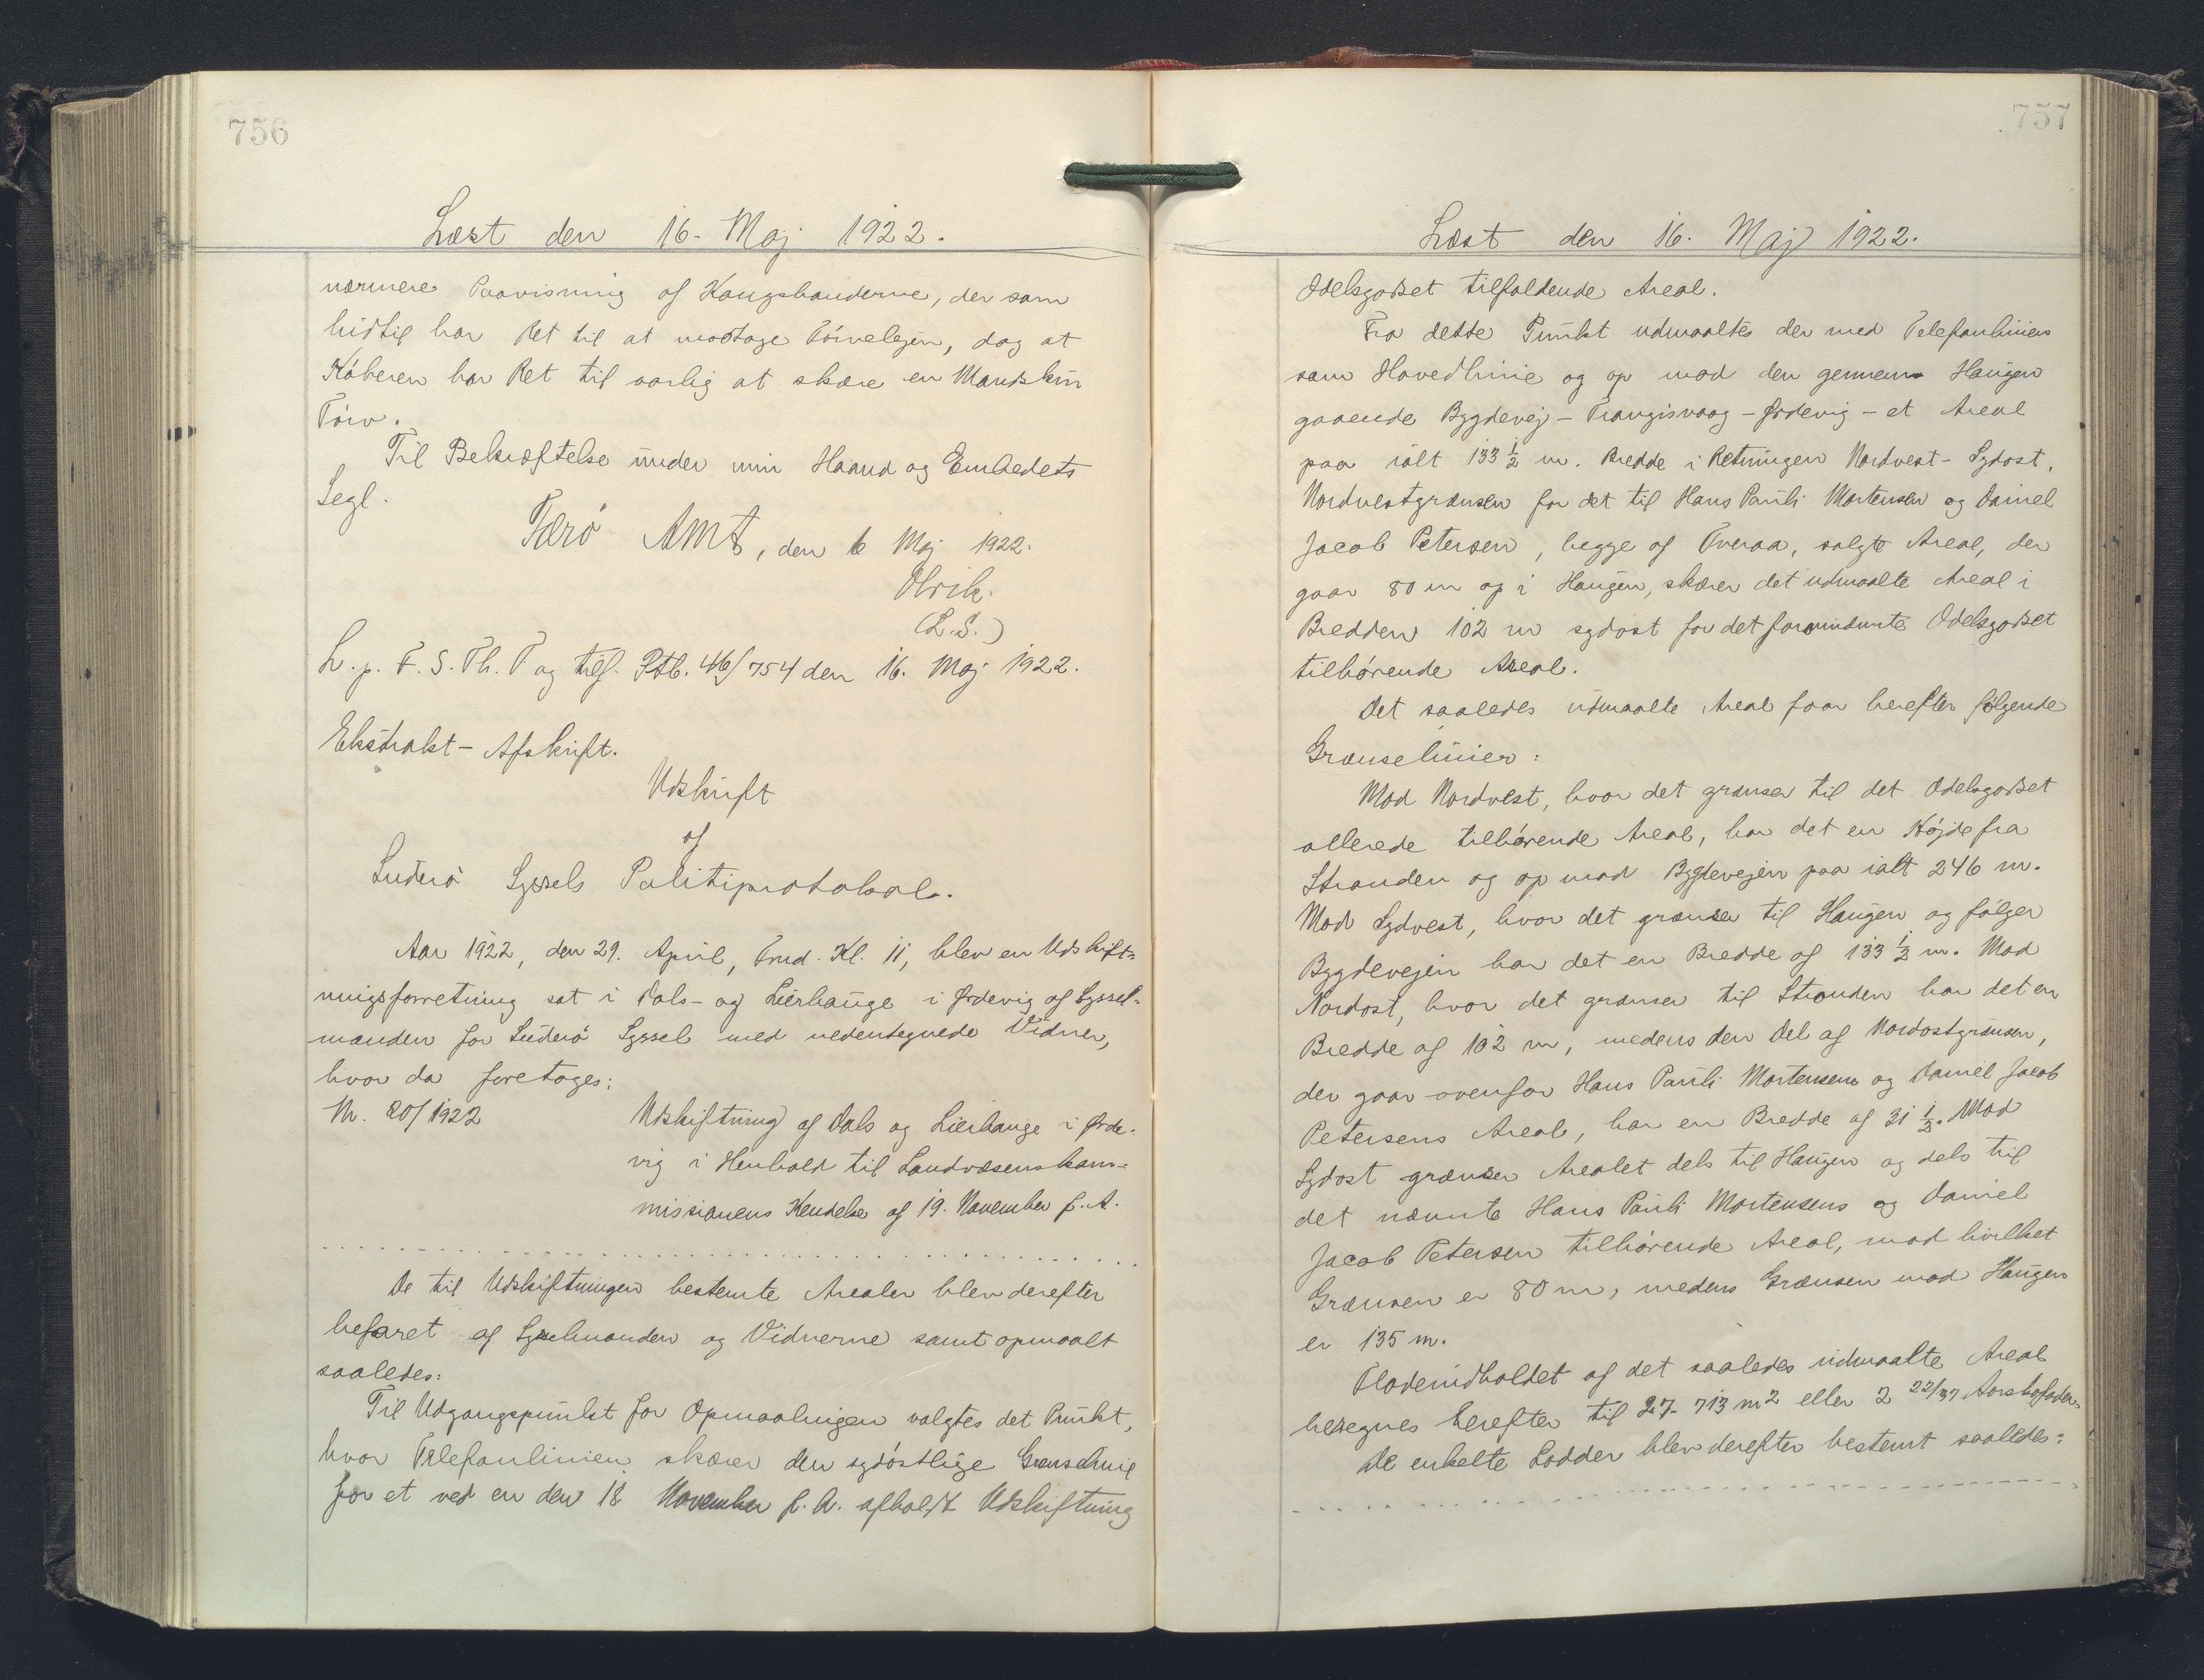 756
Læst den 16. Maj 1922.
nærmere Paavisning af Kongsbønderne, der som
hidtil har Ret til at modtage Törvelejen, dog at
Köberen har Ret til aarlig at skære en Mandskur
Törv.
Til Bekræftelse under min Haand og Embedets
Segl.
Færö Amt, den 6 Maj 1922.
Olrik.
(L.S.)
L. p. F. S. Th. T og tilf. Ptb. 46/754 den 16. Maj 1922.
Ekstrakt-Afskrift.
Udskrift
af
Suderö Syssels Politiprotokol.
Aar 1922, den 29. April, Fmd. Kl. 11, blev en Udskift=
ningsforretning sat i Dals- og Lierhauge i Ørdevig af Syssel=
manden for Suderö Syssel med nedentegnede Vidner,
hvor da foretoges:
Nr. 20/1922 Udskiftning af Dals og Lierhauge i Ørde=
vig i Henhold til Landvæsenskom=
missionens Kendelse af 19. November f. A.
De til Udskiftningen bestemte Arealer blev derefter
befaret af Sysselmanden og Vidnerne samt opmaalt
saaledes:
Til Udgangspunkt for Opmaalingen valgtes det Punkt,
hvor Telefonlinien skærer den sydöstlige Grænselinie
for et ved en den 18 November f. A. afholdt Udskiftning
757
Læst den 16. Maj 1922.
Odelsgodset tilfaldende Areal.
Fra dette Punkt udmaaltes der med Telefonlinien
som Hovedlinie og op mod den gennem Haugen
gaaende Bygdevej - Trangisvaag - Ørdevig - et Areal
paa ialt 133 1/2 m. Bredde i Retningen Nordvest-Sydost.
Nordvestgrænsen for det til Hans Pauli Mortensen og Daniel
Jacob Petersen, begge af Tveraa, solgte Areal, der
gaar 80 m op i Haugen, skærer det udmaalte Areal i
Bredden 102 m sydost for det foromendte Odelsgodset
tilhörende Areal.
Det saaledes udmaalte Areal faar herefter følgende
Grænselinier:
Mod Nordvest, hvor det grænser til det Odelsgodset
allerede tilhörende Areal, har det en Højde fra
Stranden og op mod Bygdevejen paa ialt 246 m.
Mod Sydvest, hvor det grænser til Haugen og fölger
Bygdevejen har det en Bredde af 133 1/2 m. Mod
Nordost, hvor det grænser til Stranden har det en
Bredde af 102 m, medens den Del af Nordostgrænsen,
der gaar ovenfor Hans Pauli Mortensens og Daniel Jacob
Petersens Areal, har en Bredde af 31 1/2. Mod
Sydost grænser Arealet dels til Haugen og dels til
det nævnte Hans Pauli Mortensens og Daniel
Jacob Petersen tilhörende Areal, mod hvilket
Grænsen er 80 m, medens Grænsen mod Haugen
er 135 m.
Fladeindholdet af det saaledes udmaalte Areal
beregnes herefter til 27. 713 m2 eller 2 22/37
De enkelte Lodder blev derefter bestemt saaledes: